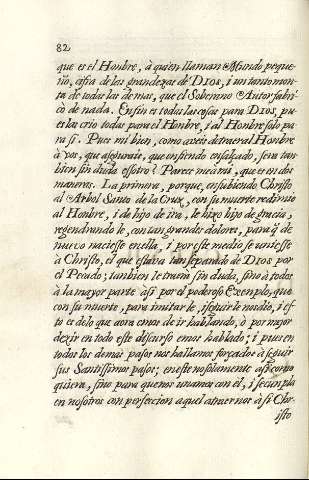 82
que es el Honbre, à quien llaman Mundo peque-
ño, cifra de las grandezas de DIOS, i un tanto mon-
ta de todas las demas, que el Soberano Autor fabri-
cò de nada. En fin es todas las cosas para DIOS, pu-
es las crio todas para el Honbre, i al Honbre solo pa-
ra si. Pues mi bien, como aveis de traer al Honbre
à vos, que asegurais, que en siendo ensalçado, sera tan-
bien sin duda esotro? Pareceme a mi, que es en dos
maneras. La primera, porque, en subiendo Christo
al Arbol Santo de la Cruz, con su muerte redimio
al Honbre, i de hijo de ira, le hizo hijo de gracia,
regendrandole, con tan grandes dolores, para q̃ de
nuevo naciesse en ella, i por este medio se uniesse
à Christo, el que estava tan separado de DIOS por
el Pecado; tanbien le traeria sin duda, sino à todos,
à la mayor parte asi por el poderoso Exenplo, que
con su muerte, para imitarle, i seguirle nos dio, i es-
to es de lo que aora emos de ir hablando, ò por mejor
dezir en todo este discurso emos hablado; i pues en
todos los demas pasos nos hallamos forçados à seguir
sus Santissimos pasos; en este no solamente asi como
quiera, sino para que nos unamos con el, i se cunpla
en nosotros con perfeccion aquel atraernos à si Chr-
isto